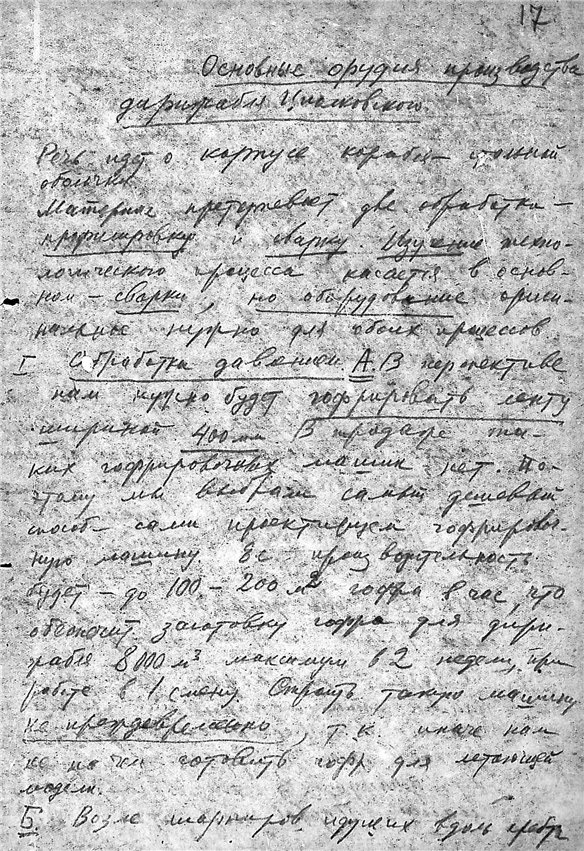 17
Основные орудия производства
дирижабля Циолковского.
Речь идет о корпусе корабля – стальной
оболочке.
Материал претерпевает две обработки –
профилировку и сварку. Изучение техно-
логического процесса касается в основ-
ном – сварки, но оборудование ориги-
нальные нужно для обоих процессов.
I Обработка давлением. А. В перспективе
нам нужно будет гофрировать ленту
шириной 400 мм В продаже та-
ких гофрировочных машин нет. По-
этому мы выбрали самый дешевый
способ – сами проектируем гофрировоч-
ную машину. Ее производительность
будет – до 100 – 200 м² гофра в час, что
обеспечит заготовку гофра для дири-
жабля 8000 м³ максимум в 2 недели, при
работе в 1 смену. Строить такую машину
не преждевременно, т.к. иначе нам
не на чем готовить гофр для летающей
модели.
Б Возле шарниров, идущих вдоль